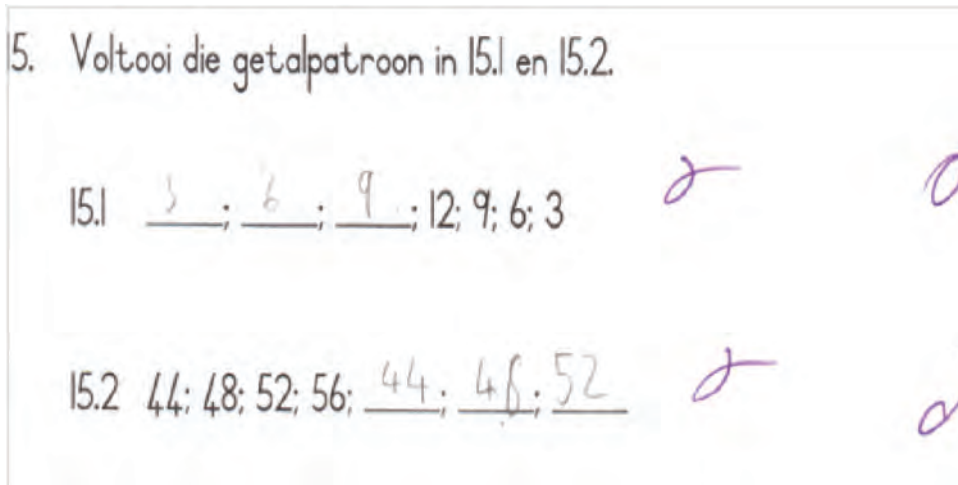 15. Voltooi die getalpatroon in 15.1 en 15.2.
15.1 3; 6; 9; 12; 9; 6; 3
15.2 44; 48; 52; 56; 44; 48; 52